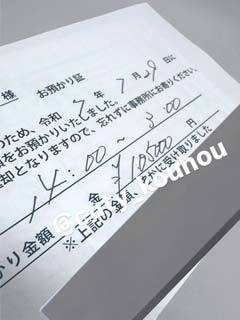 様 お預かり証
のため、令和 7 年 7 月 29 日に
をお預かりいたしました。
却となりますので、忘れずに事務所にお寄りください。
14:00 〜 3:00
かり金額 金 ¥105000 円
※上記の金額、たしかに受け取りました